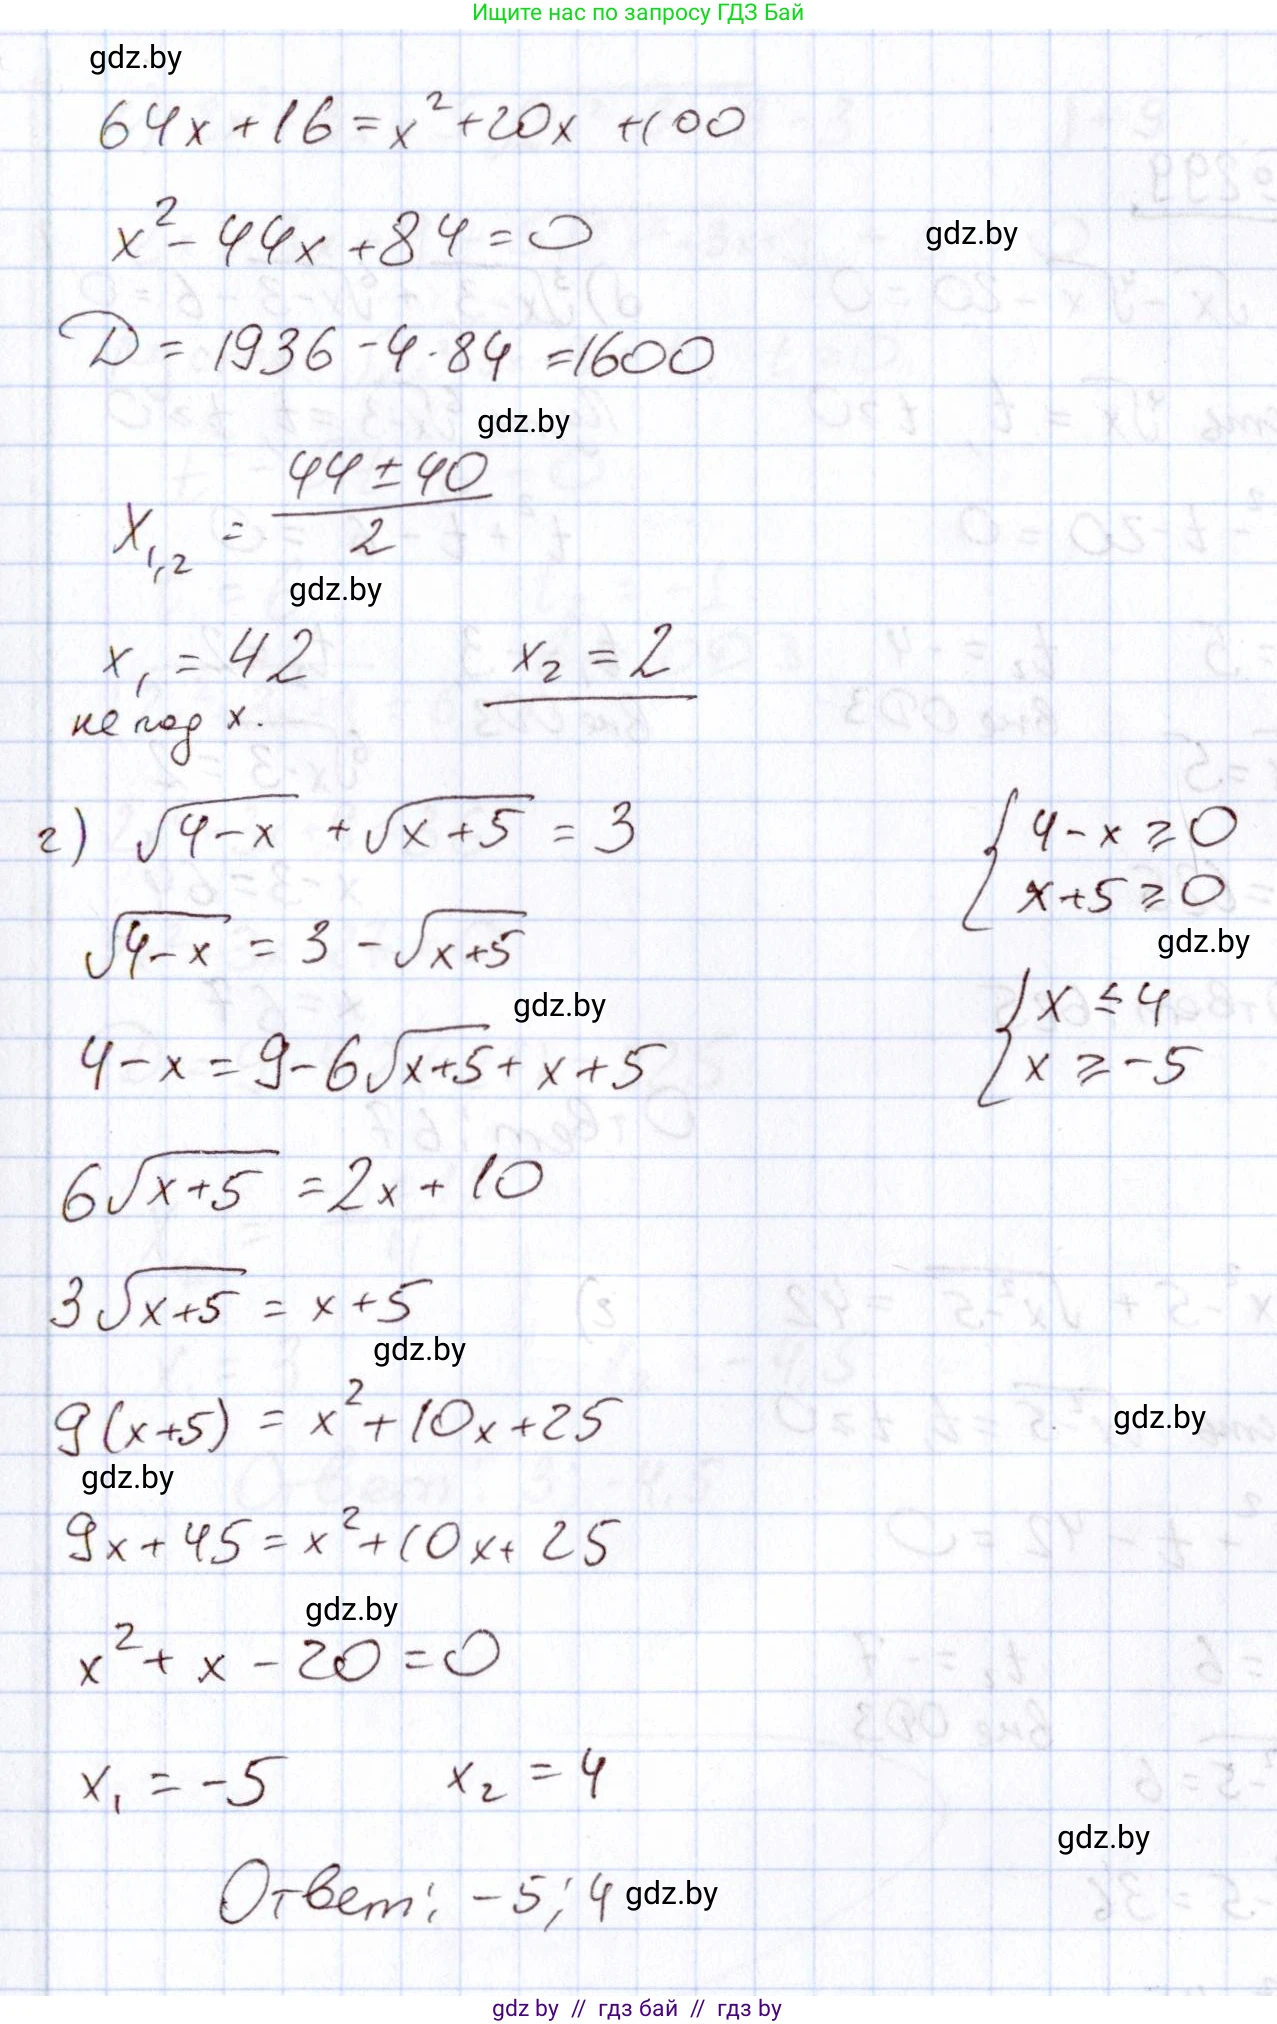 Ищите нас по запросу ГДЗ Бай
gdz.by
64x + 16 = x² + 20x + 100
x² - 44x + 84 = 0
gdz.by
D = 1936 - 4·84 = 1600
gdz.by
x₁,₂ = (44 ± 40)/2
gdz.by
x₁ = 42 x₂ = 2
не подх.
г) √(4-x) + √(x+5) = 3 { 4-x ≥ 0
x+5 ≥ 0
√(4-x) = 3 - √(x+5)
gdz.by
gdz.by
{ x ≤ 4
x ≥ -5
4-x = 9 - 6√(x+5) + x + 5
6√(x+5) = 2x + 10
3√(x+5) = x+5
gdz.by
9(x+5) = x² + 10x + 25
gdz.by
gdz.by
9x + 45 = x² + 10x + 25
gdz.by
x² + x - 20 = 0
x₁ = -5 x₂ = 4
gdz.by
Ответ: -5; 4
gdz.by
gdz by // гдз бай // гдз by